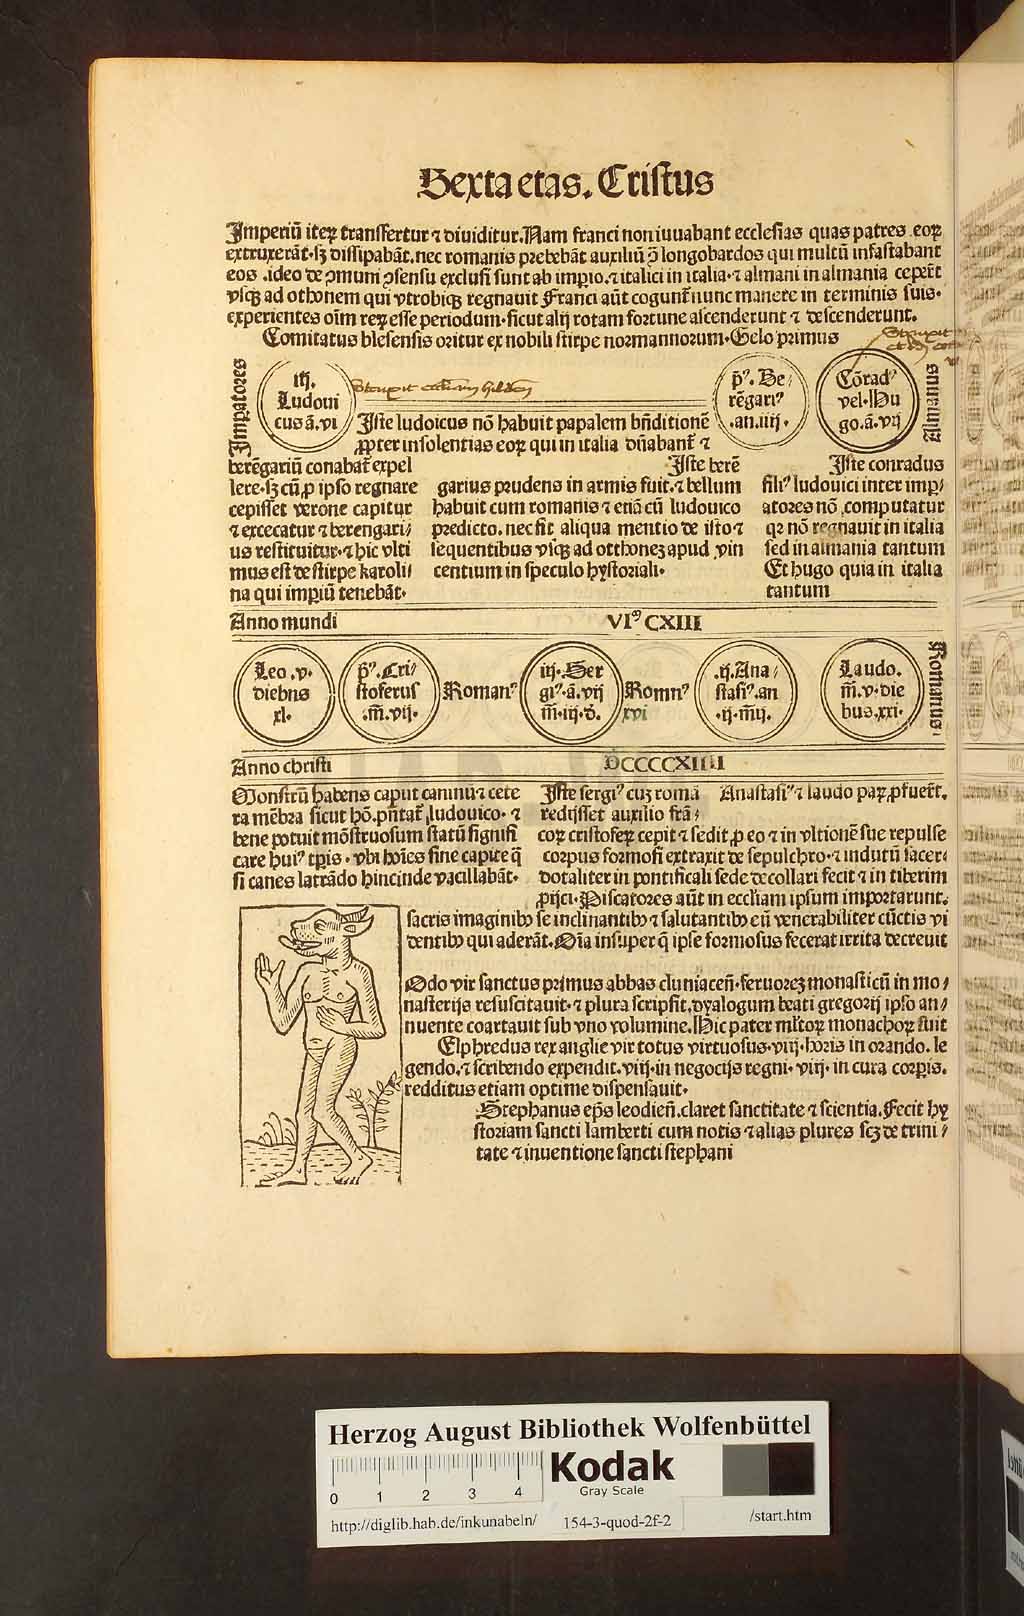 Sexta etas. Cristus
Imperiū iteꝝ transfertur ⁊ diuiditur. Nam franci non iuuabant ecclesias quas patres eoꝝ
extruxerāt. sꝫ dissipabāt. nec romanis prebebāt auxiliū ꝯ longobardos qui multū infastabant
eos. ideo de ꝯmuni ꝯsensu exclusi sunt ab imperio. ⁊ italici in italia. ⁊ almani in almania ceper̄t
vsqꝫ ad othonem qui vtrobiqꝫ regnauit Franci aūt cogunt̄ nunc manere in terminis suis.
experientes oīm reꝝ esse periodum. sicut alij rotam fortune ascenderunt ⁊ descenderunt.
Comitatus blesensis oritur ex nobili stirpe normannorum. Gelo primus
Imperatores
iij.
Ludoui
cus ā. vi
p̄ꝰ. Be/
rēgariꝰ
.an. iiij.
Cōradꝰ
vel. Hu
go. ā. vij
Almanus
Iste ludoicus nō habuit papalem bn̄ditionē
ꝓpter insolentias eoꝝ qui in italia dn̄abant̄ ⁊
berēgariū conabat̄ expel
lere. sꝫ cū ꝑ ipso regnare
cepisset verone capitur
⁊ excecatur ⁊ berengari/
us restituitur. ⁊ hic vlti
mus est de stirpe karoli/
na qui imperiū tenebāt.
Iste berē
garius prudens in armis fuit. ⁊ bellum
habuit cum romanis ⁊ etiā cū ludouico
predicto. nec fit aliqua mentio de isto ⁊
sequentibus vsqꝫ ad otthoneꝫ apud vin
centium in speculo hystoriali.
Iste conradus
filiꝰ ludouici inter imp/
atores nō computatur
qꝛ nō regnauit in italia
sed in almania tantum
Et hugo quia in italia
tantum
Anno mundi VIᵐ CXIII
Leo .v.
diebus
xl.
p̄ꝰ. Cri/
stoferus
.m̄. vij.
Romanꝰ
iij. Ser
giꝰ. ā. vij
m̄. iij. d.
Romnꝰ
xvi
.ij. Ana/
stasiꝰ. an
.ij. m̄ij.
Laudo.
m̄. v. die
bus. xxi.
Romanus.
Anno christi DCCCCXIIII
Monstrū habens caput caninū ⁊ cete
ra mēbra sicut hō. pn̄tat̄ ludouico. ⁊
bene potuit mōstruosum statū signifi
care huiꝰ tꝑis. vbi hoīes sine capite q̄
si canes latrādo hincinde vacillabāt.
Iste sergiꝰ cuꝫ romā
redijsset auxilio frā/
Anastasiꝰ ⁊ laudo paꝝ ꝓfuer̄t.
coꝝ cristofeꝝ cepit ⁊ sedit ꝑ eo ⁊ in vltionē sue repulse
corpus formosi extraxit de sepulchro. ⁊ indutū sacer/
dotaliter in pontificali sede decollari fecit ⁊ in tiberim
ꝓijci. Piscatores aūt in ecclīam ipsum importarunt.
sacris imaginibꝫ se inclinantibꝫ ⁊ salutantibꝫ eū venerabiliter cūctis vi
dentibꝫ qui aderāt. Oīa insuper q̄ ipse formosus fecerat irrita decreuit
Odo vir sanctus primus abbas cluniaceñ. feruoreꝫ monasticū in mo/
nasterijs resuscitauit. ⁊ plura scripsit. dyalogum beati gregorij ipso an/
nuente coartauit sub vno volumine. Hic pater ml̄toꝝ monachoꝝ fuit
Elphredus rex anglie vir totus virtuosus. viij. horis in orando. le
gendo. ⁊ scribendo expendit. viij. in negocijs regni. viij. in cura corꝑis.
redditus etiam optime dispensauit.
Stephanus ep̄s leodieñ. claret sanctitate ⁊ scientia. Fecit hy
storiam sancti lamberti cum notis ⁊ alias plures scꝫ de trini/
tate ⁊ inuentione sancti stephani
Herzog August Bibliothek Wolfenbüttel
0 1 2 3 4
Kodak
Gray Scale
http://diglib.hab.de/inkunabeln/ 154-3-quod-2f-2 /start.htm